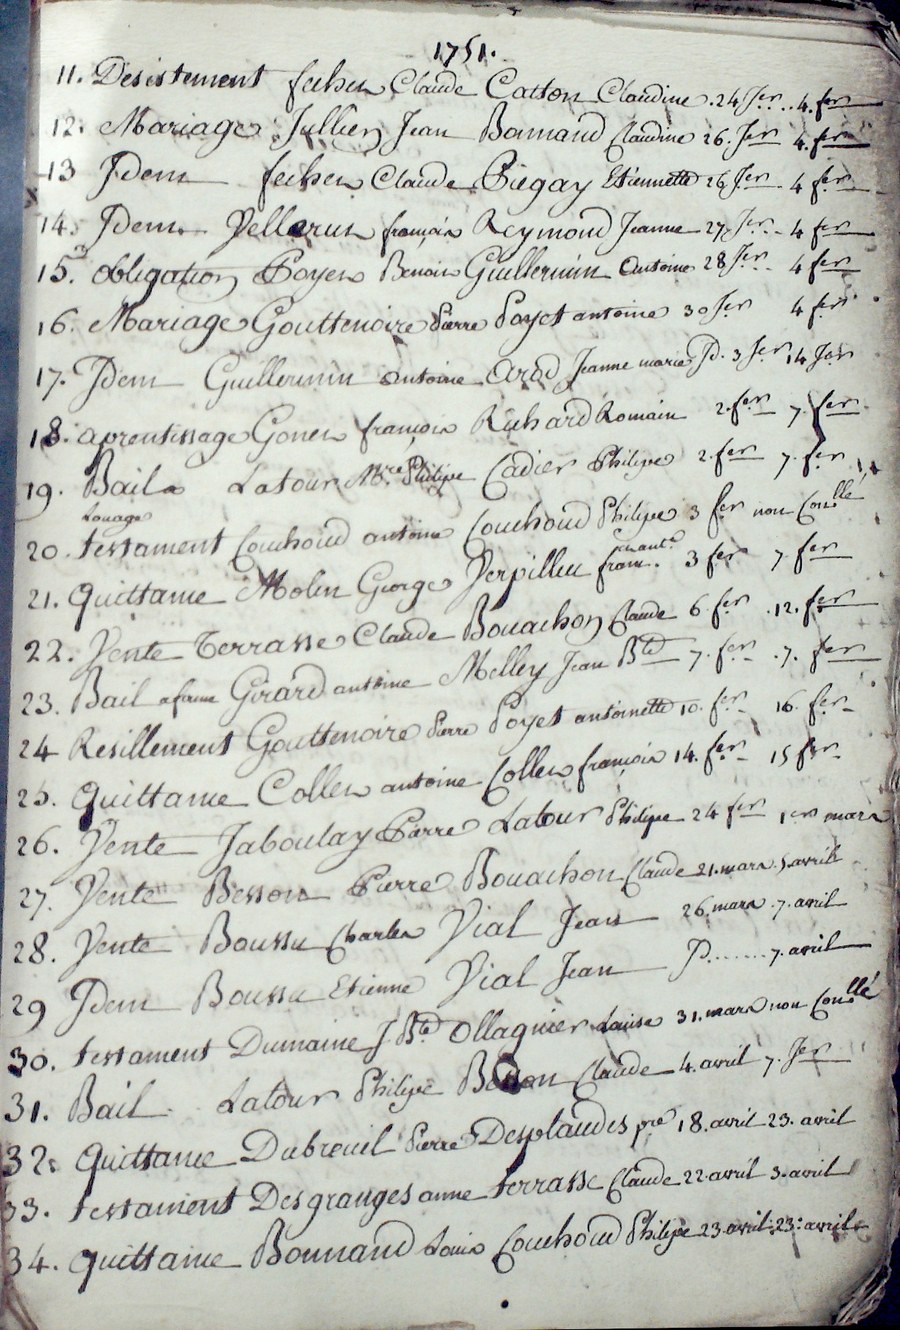 1751.
11. Desistement fecher Claude Catton Claudine . 24 Jer .. 4. fer
12. Mariage Jullien Jean Bonnand Claudine 26. Jer 4. fer
13 Jdem fecher Claude Piegay Etiennette 26 Jer 4 fer
14. Jdem Vellerut françois Reymond Jeanne 27. Jer 4 fer
15. obligation Poyer Benoit Guillermin antoine 28 Jer 4 fer
16. Mariage Gouttenoire Pierre Poyet antoine 30 Jer 4 fer
17. Jdem Guillermin antoine Arod Jeanne marie P. 3 Jer 14 Jer
18. aprentissage Gonen françois Richard Romain 2. fer 7. fer
19. Bail a Latour Mre Philipe Cadier Philipe 2. fer 7. fer
Louage
20. testament Couhoud antoine Couhoud Philipe 3 fer non Conllé
21. quittance Molin George Verpilleu fran. 3 fer 7. fer
22. Vente Terrasse Claude Bouachon Claude 6. fer . 12. fer
23. Bail a ferme Girard antoine Melley Jean Bte 7. fer . 7. fer
24 Resillement Gouttenoire Pierre Poyet antoinette 10. fer 16. fer
25. quittance Collen antoine Collen françois 14. fer 15 fer
26. Vente Jaboulay Pierre Latour Philipe 24 fer 1er mars
27. Vente Besson Pierre Bouachon Claude 21. mars . 5 avril
28. Vente Boussu Charles Vial Jean 26. mars . 7. avril
29 Jdem Boussu Etienne Vial Jean P....... 7. avril
30. testament Dumaine J. Bte Ollagnier Louise 31. mars non Conllé
31. Bail Latour Philipe Besson Claude 4. avril 7. Jer
32. quittance Dubreuil Pierre Desplaudes pre 18. avril 23. avril
33. testament Desgranges anne terrasse Claude 22 avril 3. avril
34. quittance Bonnand Louis Couhoud Philipe 23. avril . 23. avril